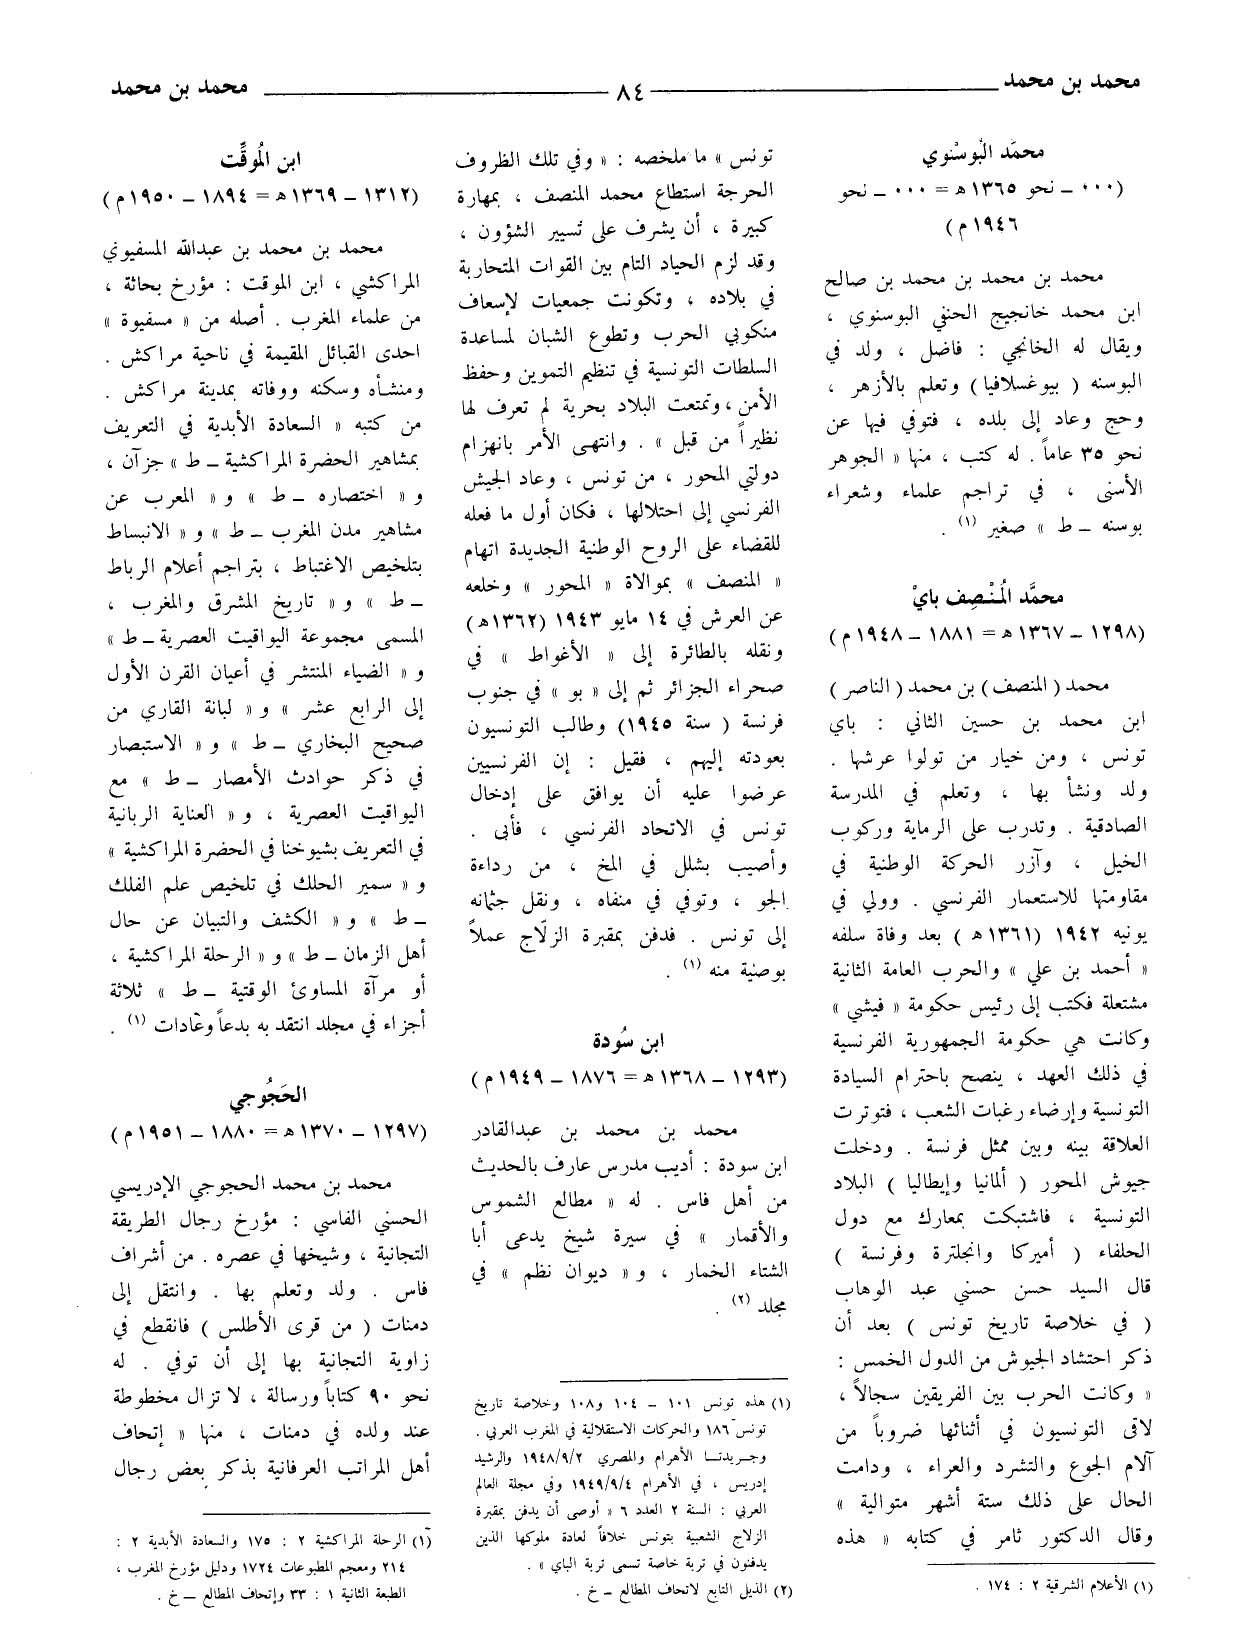 محمد بن محمد
٨٤
محمد بن محمد
محمَّد البُوسْنوي
(٠٠٠ ـ نحو ١٣٦٥ ه‍ = ٠٠٠ ـ نحو
١٩٤٦ م)
محمد بن محمد بن محمد بن صالح
ابن محمد خانجيج الحنفي البوسنوي ،
ويقال له الخانجي : فاضل ، ولد في
البوسنه ( بيوغسلافيا ) وتعلم بالأزهر ،
وحج وعاد إلى بلده ، فتوفي فيها عن
نحو ٣٥ عاماً . له كتب ، منها « الجوهر
الأسنى ، في تراجم علماء وشعراء
بوسنه ـ ط » صغير (١) .
محمَّد المُنْصِف بايْ
(١٢٩٨ ـ ١٣٦٧ ه‍ = ١٨٨١ ـ ١٩٤٨ م)
محمد ( المنصف ) بن محمد ( الناصر )
ابن محمد بن حسين الثاني : باي
تونس ، ومن خيار من تولوا عرشها .
ولد ونشأ بها ، وتعلم في المدرسة
الصادقية . وتدرب على الرماية وركوب
الخيل ، وآزر الحركة الوطنية في
مقاومتها للاستعمار الفرنسي . وولي في
يونيه ١٩٤٢ (١٣٦١ ه‍ ) بعد وفاة سلفه
« أحمد بن علي » والحرب العامة الثانية
مشتعلة فكتب إلى رئيس حكومة « فيشي »
وكانت هي حكومة الجمهورية الفرنسية
في ذلك العهد ، ينصح باحترام السيادة
التونسية وإرضاء رغبات الشعب ، فتوترت
العلاقة بينه وبين ممثل فرنسة . ودخلت
جيوش المحور ( ألمانيا وإيطاليا ) البلاد
التونسية ، فاشتبكت بمعارك مع دول
الحلفاء ( أميركا وانجلترة وفرنسة )
قال السيد حسن حسني عبد الوهاب
( في خلاصة تاريخ تونس ) بعد أن
ذكر احتشاد الجيوش من الدول الخمس :
« وكانت الحرب بين الفريقين سجالاً ،
لاقى التونسيون في أثنائها ضروباً من
آلام الجوع والتشرد والعراء ، ودامت
الحال على ذلك ستة أشهر متوالية »
وقال الدكتور ثامر في كتابه « هذه
(١) الأعلام الشرقية ٢ : ١٧٤ .
تونس » ما ملخصه : « وفي تلك الظروف
الحرجة استطاع محمد المنصف ، بمهارة
كبيرة ، أن يشرف على تسيير الشؤون ،
وقد لزم الحياد التام بين القوات المتحاربة
في بلاده ، وتكونت جمعيات لإسعاف
منكوبي الحرب وتطوع الشبان لمساعدة
السلطات التونسية في تنظيم التموين وحفظ
الأمن ، وتمتعت البلاد بحرية لم تعرف لها
نظيراً من قبل » . وانتهى الأمر بانهزام
دولتي المحور ، من تونس ، وعاد الجيش
الفرنسي إلى احتلالها ، فكان أول ما فعله
للقضاء على الروح الوطنية الجديدة اتهام
« المنصف » بموالاة « المحور » وخلعه
عن العرش في ١٤ مايو ١٩٤٣ (١٣٦٢ ه‍)
ونقله بالطائرة إلى « الأغواط » في
صحراء الجزائر ثم إلى « بو » في جنوب
فرنسة ( سنة ١٩٤٥) وطالب التونسيون
بعودته إليهم ، فقيل : إن الفرنسيين
عرضوا عليه أن يوافق على إدخال
تونس في الاتحاد الفرنسي ، فأبى .
وأصيب بشلل في المخ ، من رداءة
الجو ، وتوفي في منفاه ، ونقل جثمانه
إلى تونس . فدفن بمقبرة الزلّاج عملاً
بوصية منه (١) .
ابن سُودة
(١٢٩٣ ـ ١٣٦٨ ه‍ = ١٨٧٦ ـ ١٩٤٩ م)
محمد بن محمد بن عبدالقادر
ابن سودة : أديب مدرس عارف بالحديث
من أهل فاس . له « مطالع الشموس
والأقمار » في سيرة شيخ يدعى أبا
الشتاء الخمار ، و « ديوان نظم » في
مجلد (٢) .
(١) هذه تونس ١٠١ ـ ١٠٤ و١٠٨ وخلاصة تاريخ
تونس ١٨٦ والحركات الاستقلالية في المغرب العربي .
وجريدتا الأهرام والمصري ١٩٤٨/٩/٢ والرشيد
إدريس ، في الأهرام ١٩٤٩/٩/٤ وفي مجلة العالم
العربي : السنة ٢ العدد ٦ « أوصى أن يدفن بمقبرة
الزلاج الشعبية بتونس خلافاً لعادة ملوكها الذين
يدفنون في تربة خاصة تسمى تربة الباي » .
(٢) الذيل التابع لاتحاف المطالع ـ خ .
ابن المُوقَّت
(١٣١٢ ـ ١٣٦٩ ه‍ = ١٨٩٤ ـ ١٩٥٠ م)
محمد بن محمد بن عبدالله المسفيوي
المراكشي ، ابن الموقت : مؤرخ بحاثة ،
من علماء المغرب . أصله من « مسفيوة »
احدى القبائل المقيمة في ناحية مراكش .
ومنشأه وسكنه ووفاته بمدينة مراكش .
من كتبه « السعادة الأبدية في التعريف
بمشاهير الحضرة المراكشية ـ ط » جزآن ،
و « اختصاره ـ ط » و « المعرب عن
مشاهير مدن المغرب ـ ط » و « الانبساط
بتلخيص الاغتباط ، بتراجم أعلام الرباط
ـ ط » و « تاريخ المشرق والمغرب ،
المسمى مجموعة اليواقيت العصرية ـ ط »
و « الضياء المنتشر في أعيان القرن الأول
إلى الرابع عشر » و « لبانة القاري من
صحيح البخاري ـ ط » و « الاستبصار
في ذكر حوادث الأمصار ـ ط » مع
اليواقيت العصرية ، و « العناية الربانية
في التعريف بشيوخنا في الحضرة المراكشية »
و « سمير الحلك في تلخيص علم الفلك
ـ ط » و « الكشف والتبيان عن حال
أهل الزمان ـ ط » و « الرحلة المراكشية ،
أو مرآة المساوئ الوقتية ـ ط » ثلاثة
أجزاء في مجلد انتقد به بدعاً وعادات (١) .
الحَجُوجي
(١٢٩٧ ـ ١٣٧٠ ه‍ = ١٨٨٠ ـ ١٩٥١ م)
محمد بن محمد الحجوجي الإدريسي
الحسني الفاسي : مؤرخ رجال الطريقة
التجانية ، وشيخها في عصره . من أشراف
فاس . ولد وتعلم بها . وانتقل إلى
دمنات ( من قرى الأطلس ) فانقطع في
زاوية التجانية بها إلى أن توفي . له
نحو ٩٠ كتاباً ورسالة ، لا تزال مخطوطة
عند ولده في دمنات ، منها « إتحاف
أهل المراتب العرفانية بذكر بعض رجال
(١) الرحلة المراكشية ٢ : ١٧٥ والسعادة الأبدية ٢ :
٢١٤ ومعجم المطبوعات ١٧٢٤ ودليل مؤرخ المغرب ،
الطبعة الثانية ١ : ٣٣ وإتحاف المطالع ـ خ .